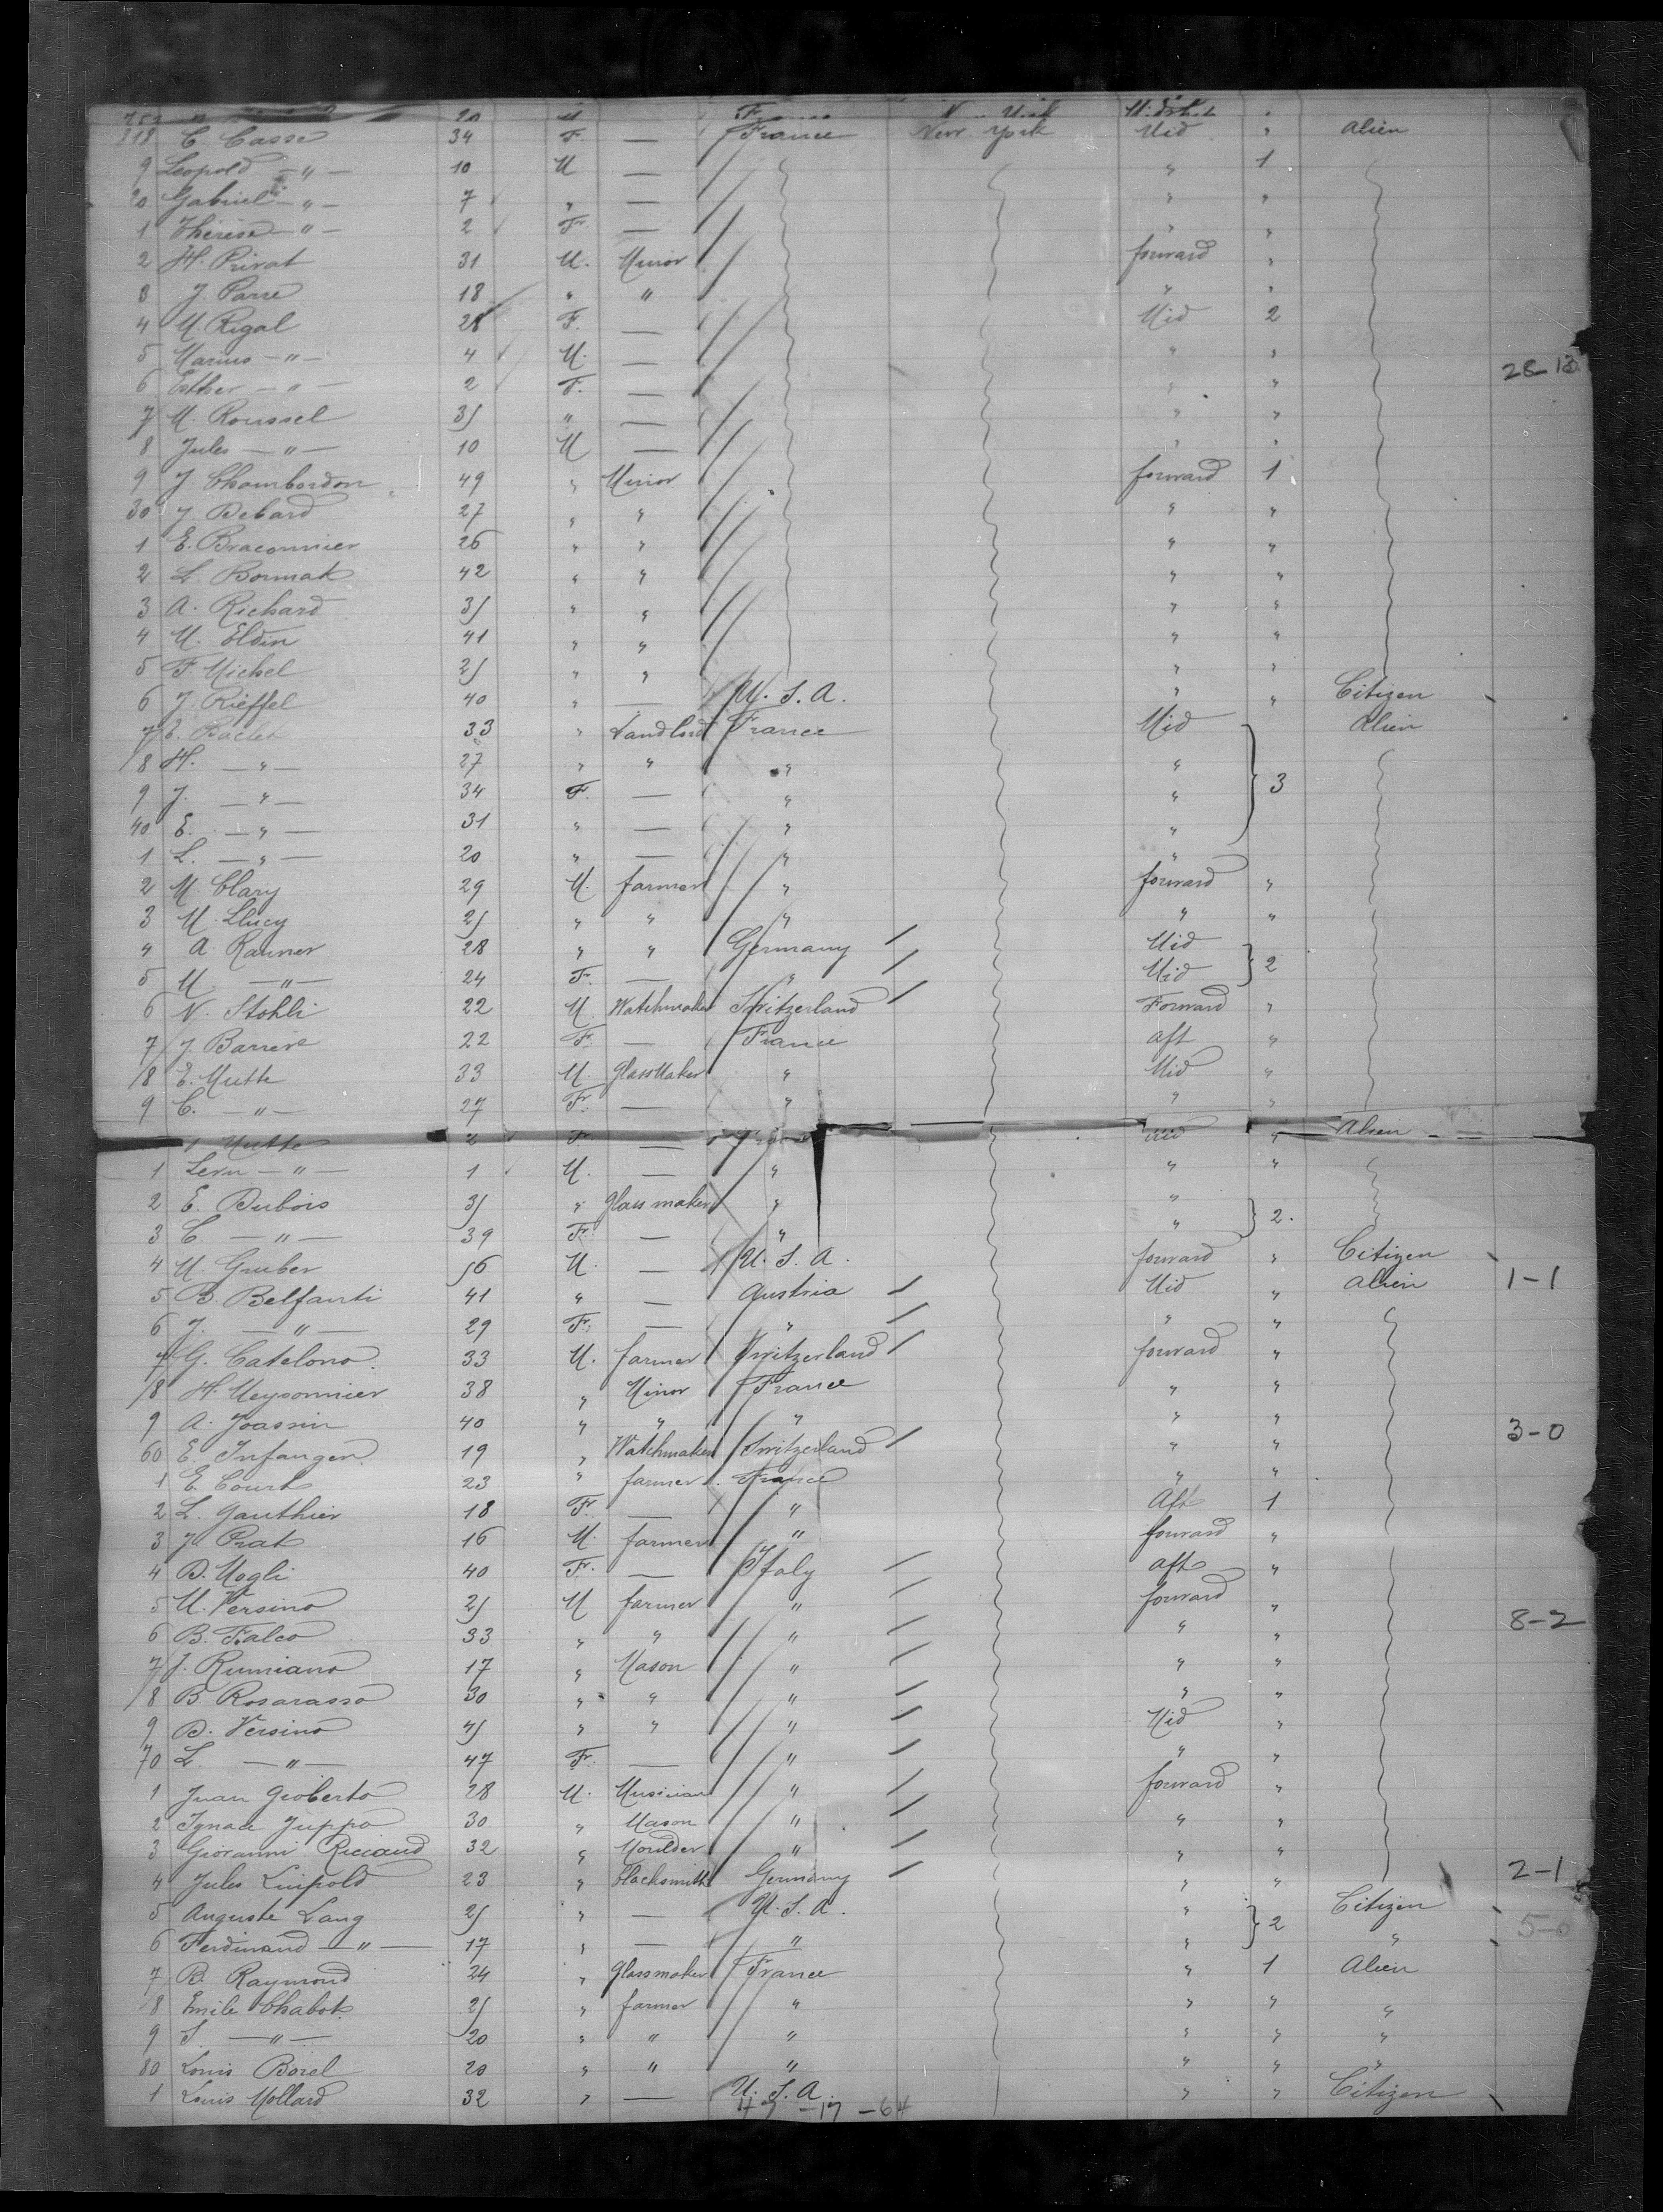 20 France New York
818 C Casse 34 F. — France New York Mid " Alien
9 Leopold — " — 10 M — " 1
20 Gabriel — " — 7 " — " "
1 Thérèse — " — 2 F. — " "
2 H. Privat 31 M. Minor forward "
3 J. Parre 18 " " " "
4 M. Rigal 28 F. — Mid 2
5 Marius — " — 4 M. — " "
6 Esther — " — 2 F. — " " 28-13
7 M. Roussel 35 " — " "
8 Jules — " — 10 M — " "
9 J. Chambordon 49 " Minor forward 1
30 J. Debard 27 " " " "
1 E. Braconnier 26 " " " "
2 L. Bormat 42 " " " "
3 A. Richard 35 " " " "
4 M. Eldin 41 " " " "
5 F. Michel 25 " " " "
6 J. Rieffel 40 " — U. S. A. " " Citizen
7 E. Baclet 33 " Landlord France Mid Alien
8 H. — " — 27 " " " "
9 J. — " — 34 F. — " " 3
40 E. — " — 31 " — " "
1 L. — " — 20 " — " "
2 M. Clary 29 M. farmer " forward "
3 M. Llucy 25 " " " " "
4 A Ranner 28 " " Germany Mid
5 M — " — 24 F. — " Mid 2
6 N. Stohli 22 M. Watchmaker Switzerland Forward "
7 J. Barrere 22 F. — France aft "
8 E. Mutte 33 M. GlassMaker " Mid "
9 C. — " — 27 F. — " " "
Mutte 2 F. — Mid " Alien
1 — " — 1 M. — " " "
2 E. Dubois 35 " Glass maker " "
3 C. — " — 39 F. — " " 2.
4 M. Gruber 56 M. — U. S. A. forward " Citizen
5 B. Belfanti 41 " — Austria Mid " Alien 1-1
6 J. — " — 29 F. — " " "
7 G. Catelono. 33 M. farmer Switzerland forward "
8 H. Meysonnier 38 " Minor France " "
9 A. Joassin 40 " " " " " 3-0
60 E. Infangen 19 " Watchmaker Switzerland " "
1 E. Court 23 " farmer France " "
2 L. Gauthier 18 F. — " Aft 1
3 J. Prat 16 M. farmer " forward "
4 D. Mogli 40 F. — Italy aft "
5 M. Versino 25 M farmer " forward "
6 B. Falco 33 " " " " " 8-2
7 J. Rumiano 17 " Mason " " "
8 B. Rosarasso 30 " " " " "
9 D. Versino 45 " " " Mid "
70 L. — " — 47 F. — " " "
1 Juan Gioberto 28 M. Musician " forward "
2 Ignace Juppo 30 " Mason " " "
3 Giovanni Ricciaud 32 " Moulder " " "
4 Jules Luipold 23 " Blacksmith Germany " " 2-1
5 Auguste Lang 25 " — U. S. A. " Citizen
6 Ferdinand — " — 17 " — " " 2 " 5-0
7 B. Raymond 24 " Glassmaker France " 1 Alien
8 Emile Chabot 25 " farmer " " " "
9 S. — " — 20 " " " " " "
80 Louis Borel 20 " " " " " "
1 Louis Mollard 32 " — U. S. A. " " Citizen
47 -17 -64